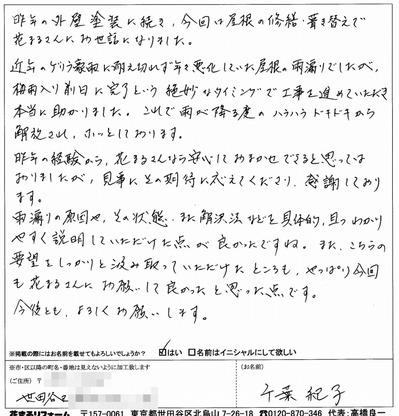 昨年の外壁塗装に続き、今回は屋根の修繕・葺き替えで
花まるさんにお世話になりました。
近年のゲリラ豪雨に耐え切れず年々悪化していた屋根の雨漏りでしたが、
梅雨入り前日に完了という絶妙なタイミングで工事を進めていただき
本当に助かりました。これで雨が降る度のハラハラドキドキから
解放され、ホッとしております。
昨年の経験から、花まるさんなら安心しておまかせできると思っては
おりましたが、見事にその期待に応えてくださり、感謝しており
ます。
雨漏りの原因や、その状態、また解決法などを具体的、且つわかり
やすく説明していただけた点が良かったですね。また、こちらの
要望をしっかりと汲み取っていただけたところも、やっぱり今回
も花まるさんにお願いして良かったと思った点です。
今後とも、よろしくお願いします。
※掲載の際にはお名前を載せてもよろしいでしょうか? ☑はい □名前はイニシャルにして欲しい
※市・区以降の町名・番地は見えないように加工致します
(ご住所) 〒
世田谷区
(お名前)
千葉 紀子
花まるリフォーム 〒157-0061 東京都世田谷区北烏山7-26-18 0120-870-346 代表:高橋良一